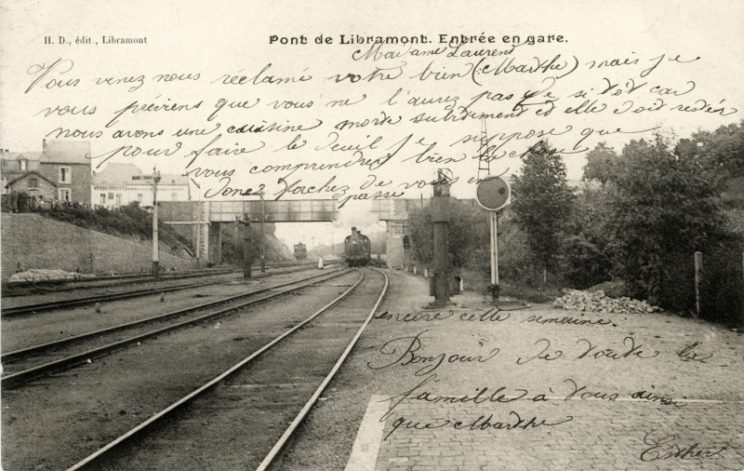 H. D., édit., Libramont
Pont de Libramont. Entrée en gare.
Madame Laurent
Vous venez nous réclamé votre bien (Marthe) mais je
vous préviens que vous ne l'aurez pas de si tôt car
nous avons une cousine morte subitement et elle doit rester
pour faire le deuil je suppose que
vous comprendrez bien la chose
donez forchez de vous en
passé
encore cette semaine.
Bonjour de toute la
famille à vous ainsi
que Marthe
Esther